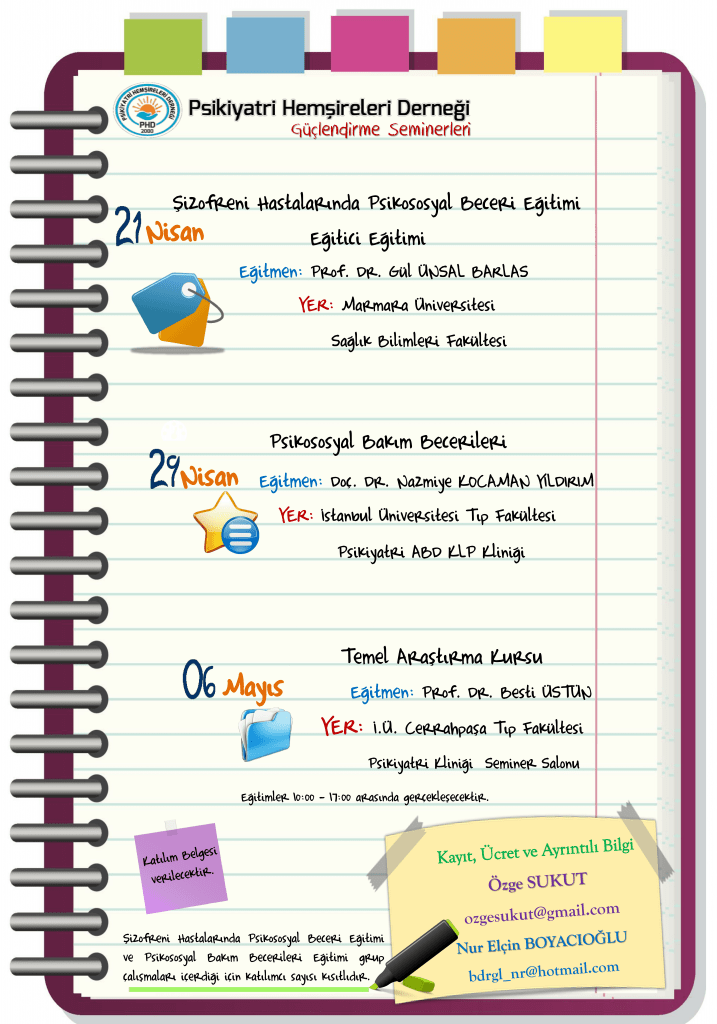 PSİKİYATRİ HEMŞİRELERİ DERNEĞİ
PHD
2000
Psikiyatri Hemşireleri Derneği
Güçlendirme Seminerleri
21 Nisan
Şizofreni Hastalarında Psikososyal Beceri Eğitimi
Eğitici Eğitimi
Eğitmen: Prof. DR. Gül ÜNSAL BARLAS
YER: Marmara Üniversitesi
Sağlık Bilimleri Fakültesi
29 Nisan
Psikososyal Bakım Becerileri
Eğitmen: Doç. DR. Nazmiye KOCAMAN YILDIRIM
YER: İstanbul Üniversitesi Tıp Fakültesi
Psikiyatri ABD KLP Kliniği
06 Mayıs
Temel Araştırma Kursu
Eğitmen: Prof. DR. Besti ÜSTÜN
YER: İ.Ü. Cerrahpaşa Tıp Fakültesi
Psikiyatri Kliniği Seminer Salonu
Eğitimler 10:00 - 17:00 arasında gerçekleşecektir.
Katılım Belgesi
verilecektir.
Şizofreni Hastalarında Psikososyal Beceri Eğitimi
ve Psikososyal Bakım Becerileri Eğitimi grup
çalışmaları içerdiği için katılımcı sayısı kısıtlıdır.
Kayıt, Ücret ve Ayrıntılı Bilgi
Özge SUKUT
ozgesukut@gmail.com
Nur Elçin BOYACIOĞLU
bdrgl_nr@hotmail.com